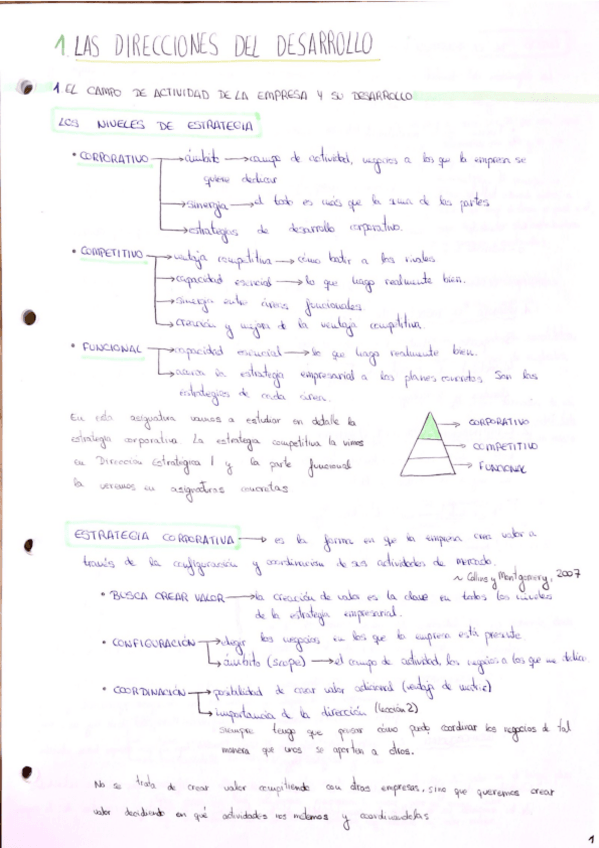 1. LAS DIRECCIONES DEL DESARROLLO
1 EL CAMPO DE ACTIVIDAD DE LA EMPRESA Y SU DESARROLLO
LOS NIVELES DE ESTRATEGIA
• CORPORATIVO → ámbito → campo de actividad, negocios a los que la empresa se
quiere dedicar
→ sinergia → el todo es más que la suma de las partes
→ estrategias de desarrollo corporativo.
• COMPETITIVO → ventaja competitiva → cómo batir a los rivales.
→ capacidad esencial → lo que hago realmente bien.
→ sinergia entre áreas funcionales.
→ creación y mejora de la ventaja competitiva.
• FUNCIONAL → capacidad esencial → lo que hago realmente bien.
→ la estrategia empresarial a los planes Son las
estrategias de cada área.
En esta asignatura vamos a estudiar en detalle la
estrategia corporativa. La estrategia competitiva la vimos
en Dirección Estratégica I y la parte funcional
la veremos en asignaturas concretas
→ CORPORATIVO
→ COMPETITIVO
→ FUNCIONAL
ESTRATEGIA CORPORATIVA → es la forma en que la empresa crea valor a
través de la configuración y coordinación de sus actividades de mercado.
~ Collins y Montgomery, 2007
• BUSCA CREAR VALOR → la creación de valor es la clave en todos los niveles
de la estrategia empresarial.
• CONFIGURACIÓN → elegir los negocios en los que la empresa está presente
→ ámbito (scope) → el campo de actividad, los negocios a los que me dedico.
• COORDINACIÓN → posibilidad de crear valor adicional (ventaja de matriz)
→ importancia de la dirección (lección 2)
siempre tengo que pensar cómo puedo coordinar los negocios de tal
manera que unos se aporten a otros.
No se trata de crear valor compitiendo con otras empresas, sino que queremos crear
valor decidiendo en qué actividades nos metemos y coordinándolas
1